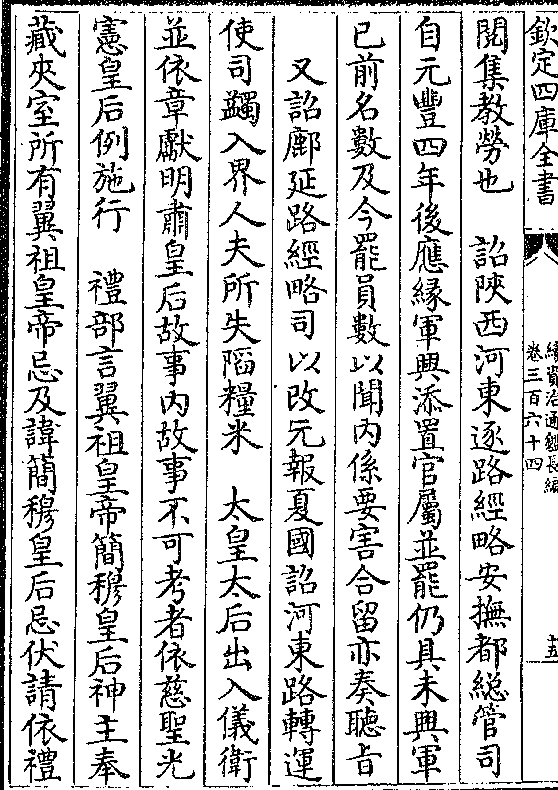 欽定四庫全書
續資治通鑑長編
卷三百六十四
十五
閱集教勞也　詔陜西河東逐路經略安撫都總管司
自元豐四年後應緣軍興添置官屬並罷仍具未興軍
已前名數及今罷員數以聞内係要害合留亦奏聽旨
又詔鄜延路經略司以改元報夏國詔河東路轉運
使司蠲入界人夫所失陷糧米　太皇太后出入儀衛
並依章獻明肅皇后故事内故事不可考者依慈聖光
憲皇后例施行　禮部言翼祖皇帝簡穆皇后神主奉
藏夾室所有翼祖皇帝忌及諱簡穆皇后忌伏請依禮